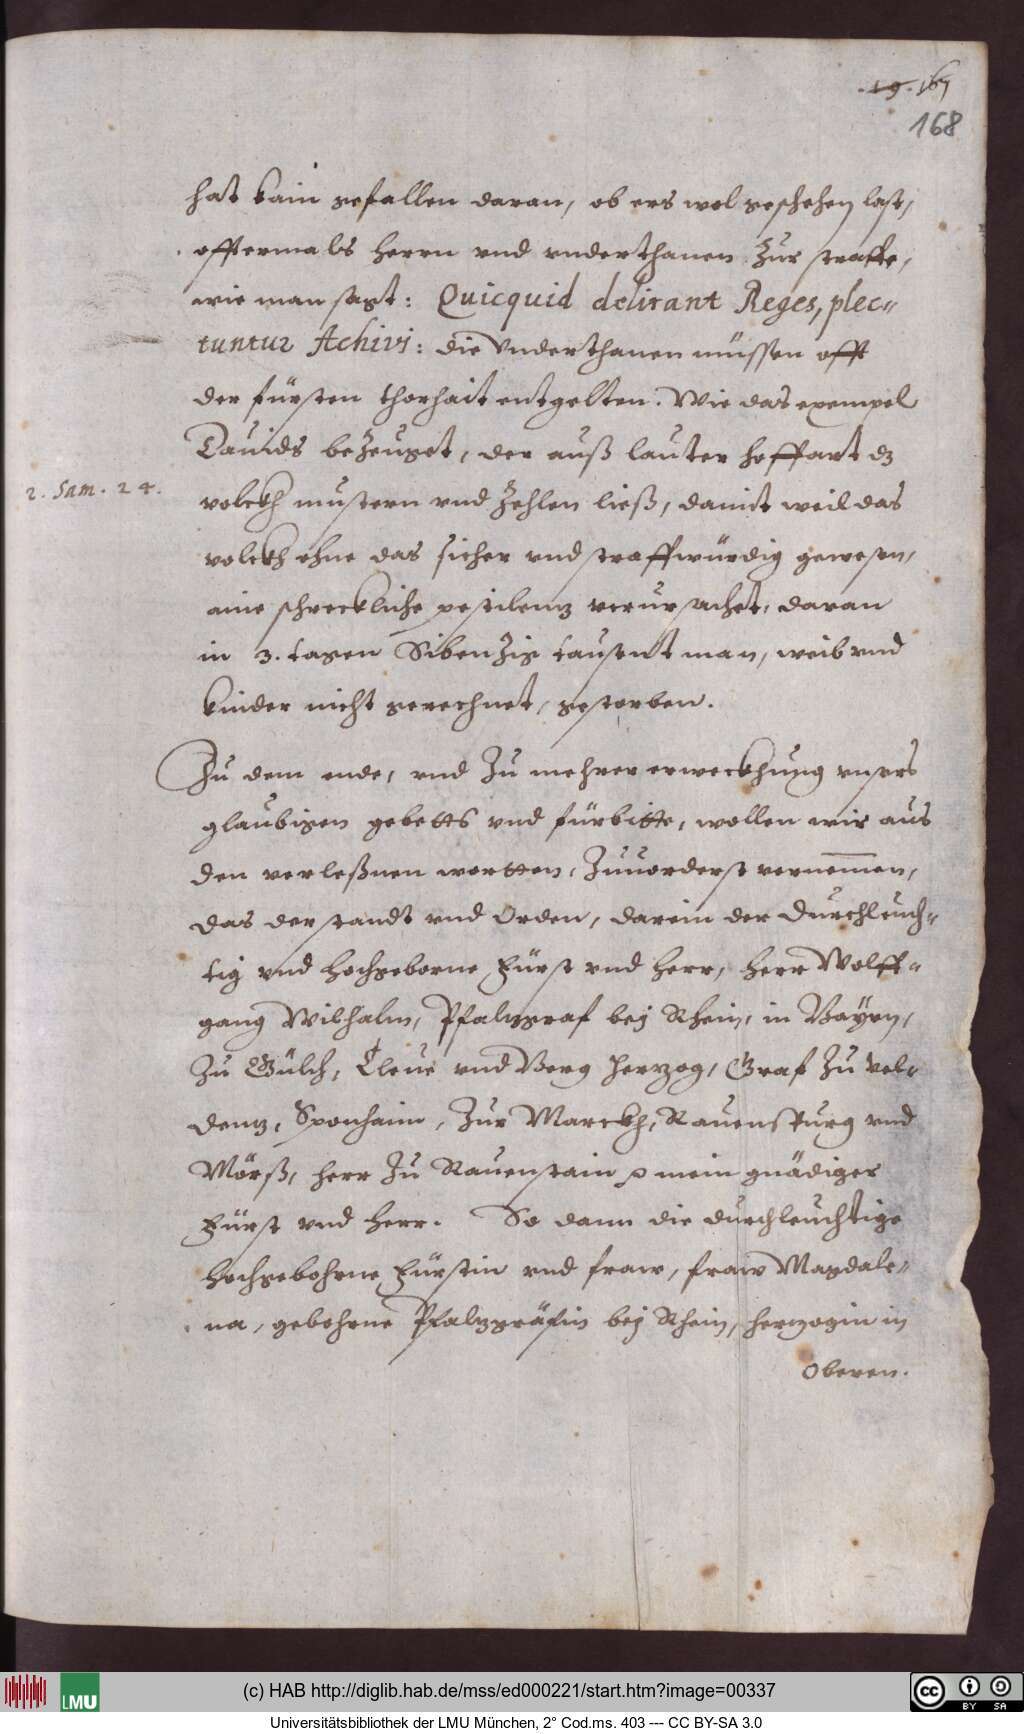 .19. 167
168
hat kain gefallen daran, ob ers wol geschehen last,
offtermals Herrn vnd vnderthanen Zur straffe,
wie man sagt: Quicquid delirant Reges, plec-
tuntur Achivi: die Vnderthanen müssen offt
der fürsten thorhait entgelten. Wie das exempel
Dauids beZeuget, der auß lauter hoffart dz
2. Sam. 24.
volckh mustern vnd Zehlen ließ, damit weil das
volckh ohne das sicher vnd straffwürdig gewesen,
aine schreckliche pestilentz verursachet, daran
in 3. tagen SibenZig tausent man, weib vnd
kinder nicht gerechnet, gestorben.
Zu dem ende, vnd Zu mehrer erweckhung vnsers
glaubigen gebetts vnd fürbitte, wollen wir aus
den verleßnen wortten, Zuuorderst vernemen,
das der standt vnd Orden, darein der Durchleuch-
tig vnd Hochgeborne Fürst vnd Herr, Herr Wolff-
gang Wilhalm, Pfaltzgraf bej Rhein, in Bayrn,
Zu Gülch, Cleue vnd Berg Hertzog, Graf Zu Vel-
dentz, Sponhaim, Zur Marckh, Rauenspurg vnd
Mörß, Herr Zu Rauenstain mein gnädiger
Fürst vnd Herr. So dann die durchleuchtige
Hochgebohrne Fürstin vnd fraw, fraw Magdale-
na, gebohrne Pfaltzgräfin bej Rhein, Hertzogin in
Oberen.
LMU
(c) HAB http://diglib.hab.de/mss/ed000221/start.htm?image=00337
cc BY SA
Universitätsbibliothek der LMU München, 2° Cod.ms. 403 --- CC BY-SA 3.0